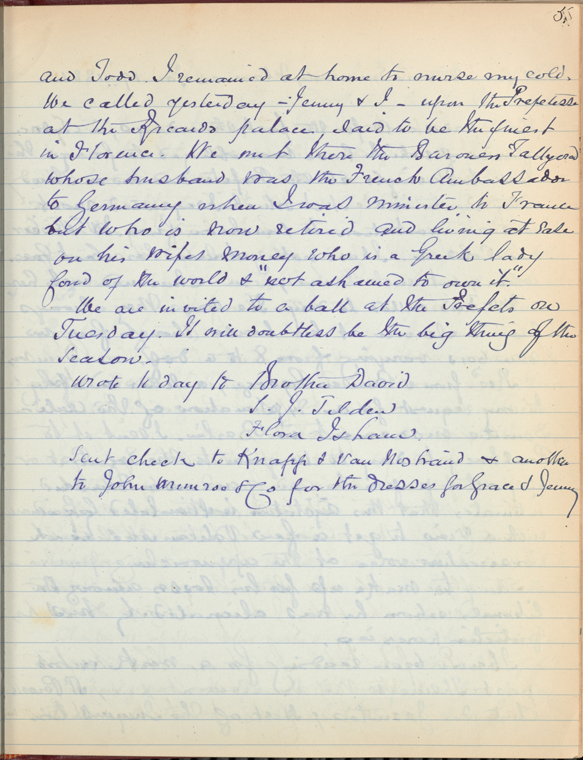 55
and Todd. I remained at home to nurse my cold.
We called yesterday – Jenny & I – upon the Prefetesse
at the Ricardo palace said to be the finest
in Florence. We met there the Baroness Tallyand
whose husband was the French Ambassador
to Germany when I was minister to France
but who is now retired and living at ease
on his wifes money who is a Greek lady
fond of the world & "not ashamed to own it."
We are invited to a ball at the Prefets on
Tuesday. It will doubtless be the big thing of the
season.
Wrote to day to Brother David
S. J. Tilden
Flora Isham.
Sent check to Knapp & Van Nostrand & another
to John Munroe & Co for the dresses for Grace & Jenny